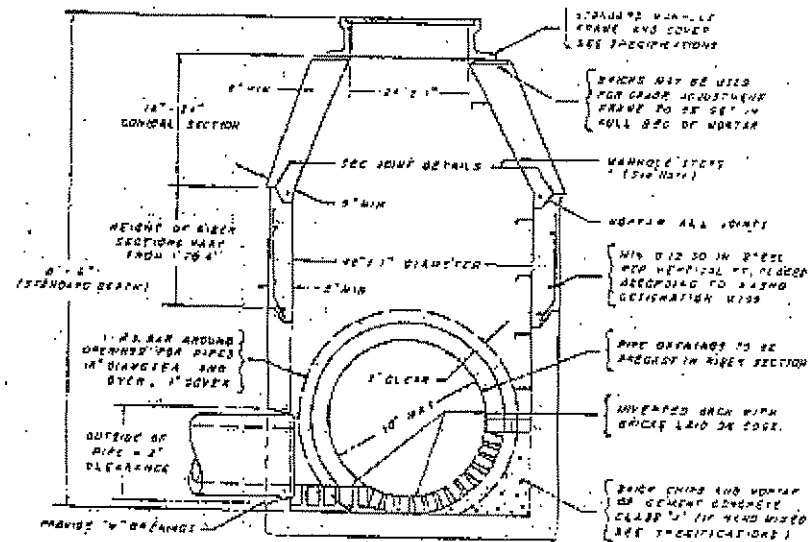 STANDARD MANHOLE
FRAME AND COVER
SEE SPECIFICATIONS
BRICKS MAY BE USED
FOR GRADE ADJUSTMENT
FRAME TO BE SET IN
FULL BED OF MORTAR
8" MIN
CONICAL SECTION
SEE JOINT DETAILS
MANHOLE STEPS
(See Note)
5" MIN
MORTAR ALL JOINTS
HEIGHT OF RISER
SECTIONS VARY
FROM 1' TO 4'
(STANDARD DEPTH)
DIAMETER
5" MIN
MIN 0.12 SQ IN STEEL
PER VERTICAL FT. PLACED
ACCORDING TO AASHO
DESIGNATION M199
BAR AROUND
OPENINGS FOR PIPES
18" DIAMETER AND
OVER, 1" COVER
PIPE OPENINGS TO BE
PRECAST IN RISER SECTION
CLEAR
MAX
INVERTED ARCH WITH
BRICKS LAID ON EDGE.
OUTSIDE OF
PIPE + 2"
CLEARANCE
BRICK CHIPS AND MORTAR
OR CEMENT CONCRETE
CLASS (IF HAND MIXED
SEE SPECIFICATIONS)
PROVIDE "V" OPENINGS